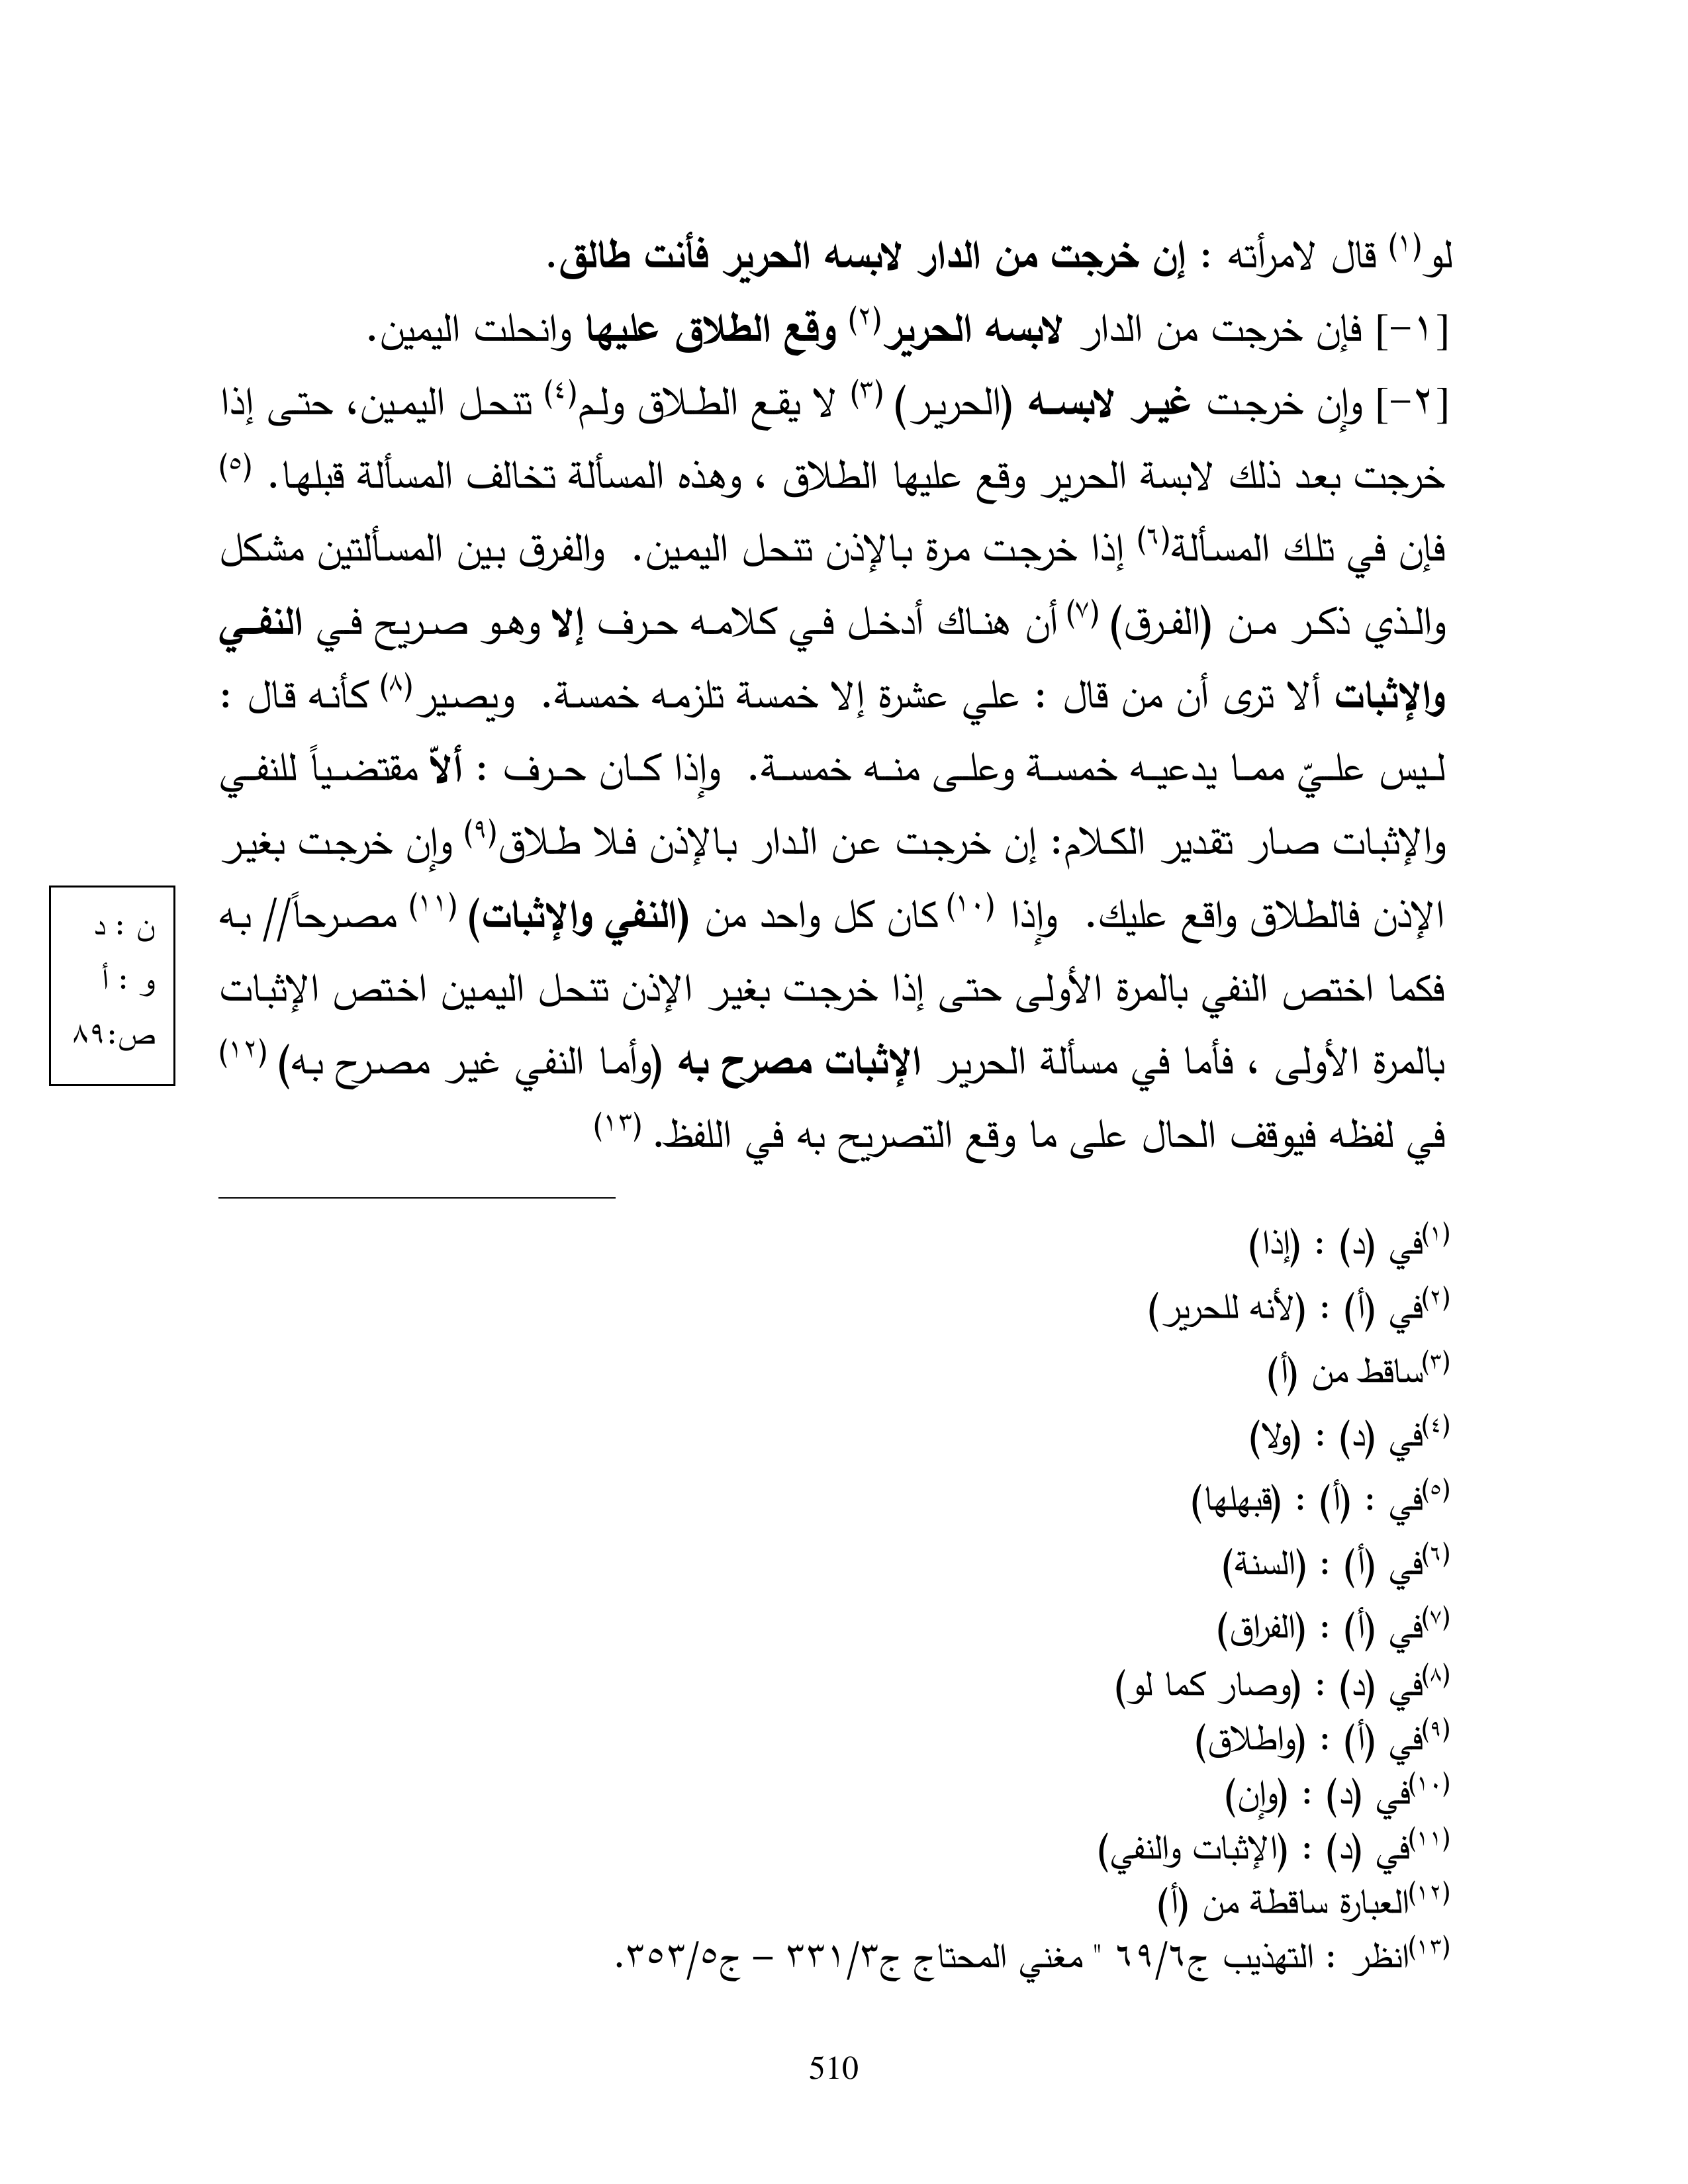 لو(١) قال لامرأته : إن خرجت من الدار لابسه الحرير فأنت طالق.
[١-] فإن خرجت من الدار لابسه الحرير(٢) وقع الطلاق عليها وانحلت اليمين.
[٢-] وإن خرجت غير لابسه (الحرير) (٣) لا يقع الطلاق ولم(٤) تنحل اليمين، حتى إذا
خرجت بعد ذلك لابسة الحرير وقع عليها الطلاق ، وهذه المسألة تخالف المسألة قبلها. (٥)
فإن في تلك المسألة(٦) إذا خرجت مرة بالإذن تنحل اليمين. والفرق بين المسألتين مشكل
والذي ذكر من (الفرق) (٧) أن هناك أدخل في كلامه حرف إلا وهو صريح في النفي
والإثبات ألا ترى أن من قال : علي عشرة إلا خمسة تلزمه خمسة. ويصير(٨) كأنه قال :
ليس عليّ مما يدعيه خمسة وعلى منه خمسة. وإذا كان حرف : ألاّ مقتضياً للنفي
والإثبات صار تقدير الكلام: إن خرجت عن الدار بالإذن فلا طلاق(٩) وإن خرجت بغير
الإذن فالطلاق واقع عليك. وإذا (١٠) كان كل واحد من (النفي والإثبات) (١١) مصرحاً// به
فكما اختص النفي بالمرة الأولى حتى إذا خرجت بغير الإذن تنحل اليمين اختص الإثبات
بالمرة الأولى ، فأما في مسألة الحرير الإثبات مصرح به (وأما النفي غير مصرح به) (١٢)
في لفظه فيوقف الحال على ما وقع التصريح به في اللفظ. (١٣)
ن : د
و : أ
ص:٨٩
(١)في (د) : (إذا)
(٢)في (أ) : (لأنه للحرير)
(٣)ساقط من (أ)
(٤)في (د) : (ولا)
(٥)في : (أ) : (قبهلها)
(٦)في (أ) : (السنة)
(٧)في (أ) : (الفراق)
(٨)في (د) : (وصار كما لو)
(٩)في (أ) : (واطلاق)
(١٠)في (د) : (وإن)
(١١)في (د) : (الإثبات والنفي)
(١٢)العبارة ساقطة من (أ)
(١٣)انظر : التهذيب ج٦/٦٩ " مغني المحتاج ج٣/٣٣١ – ج٥/٣٥٣.
510